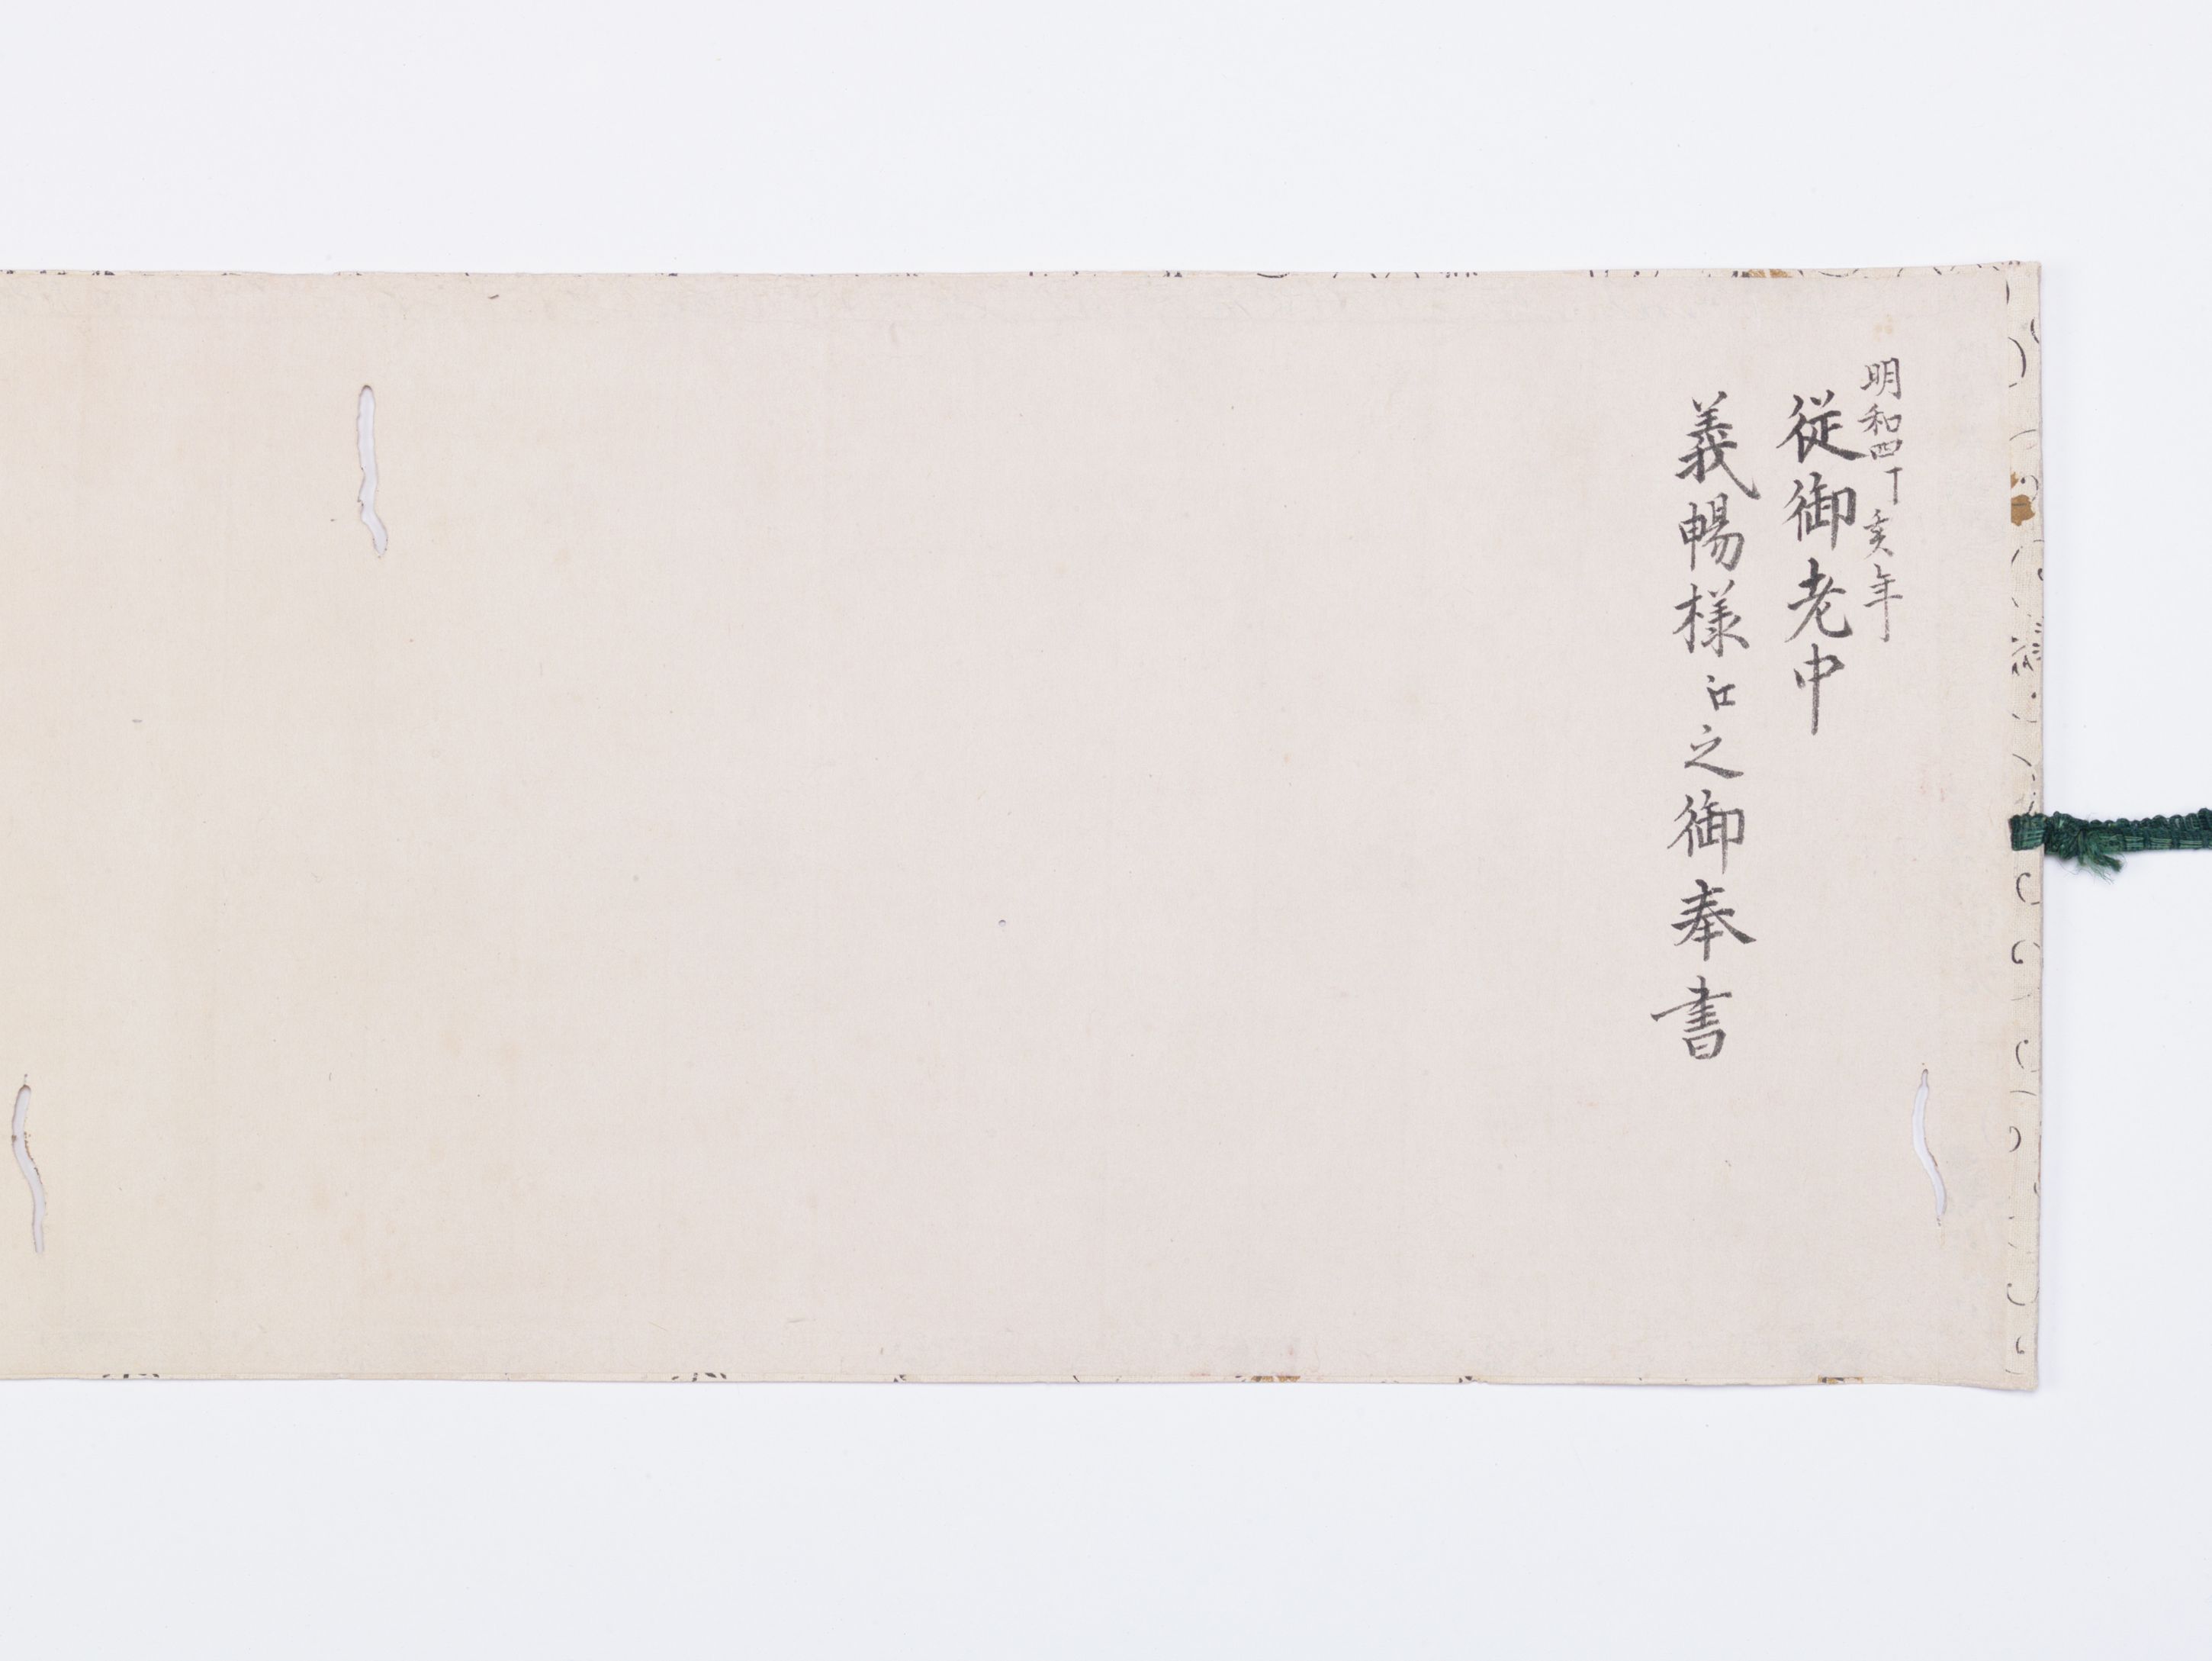 明和四丁亥年
従御老中
義暢様江之御奉書